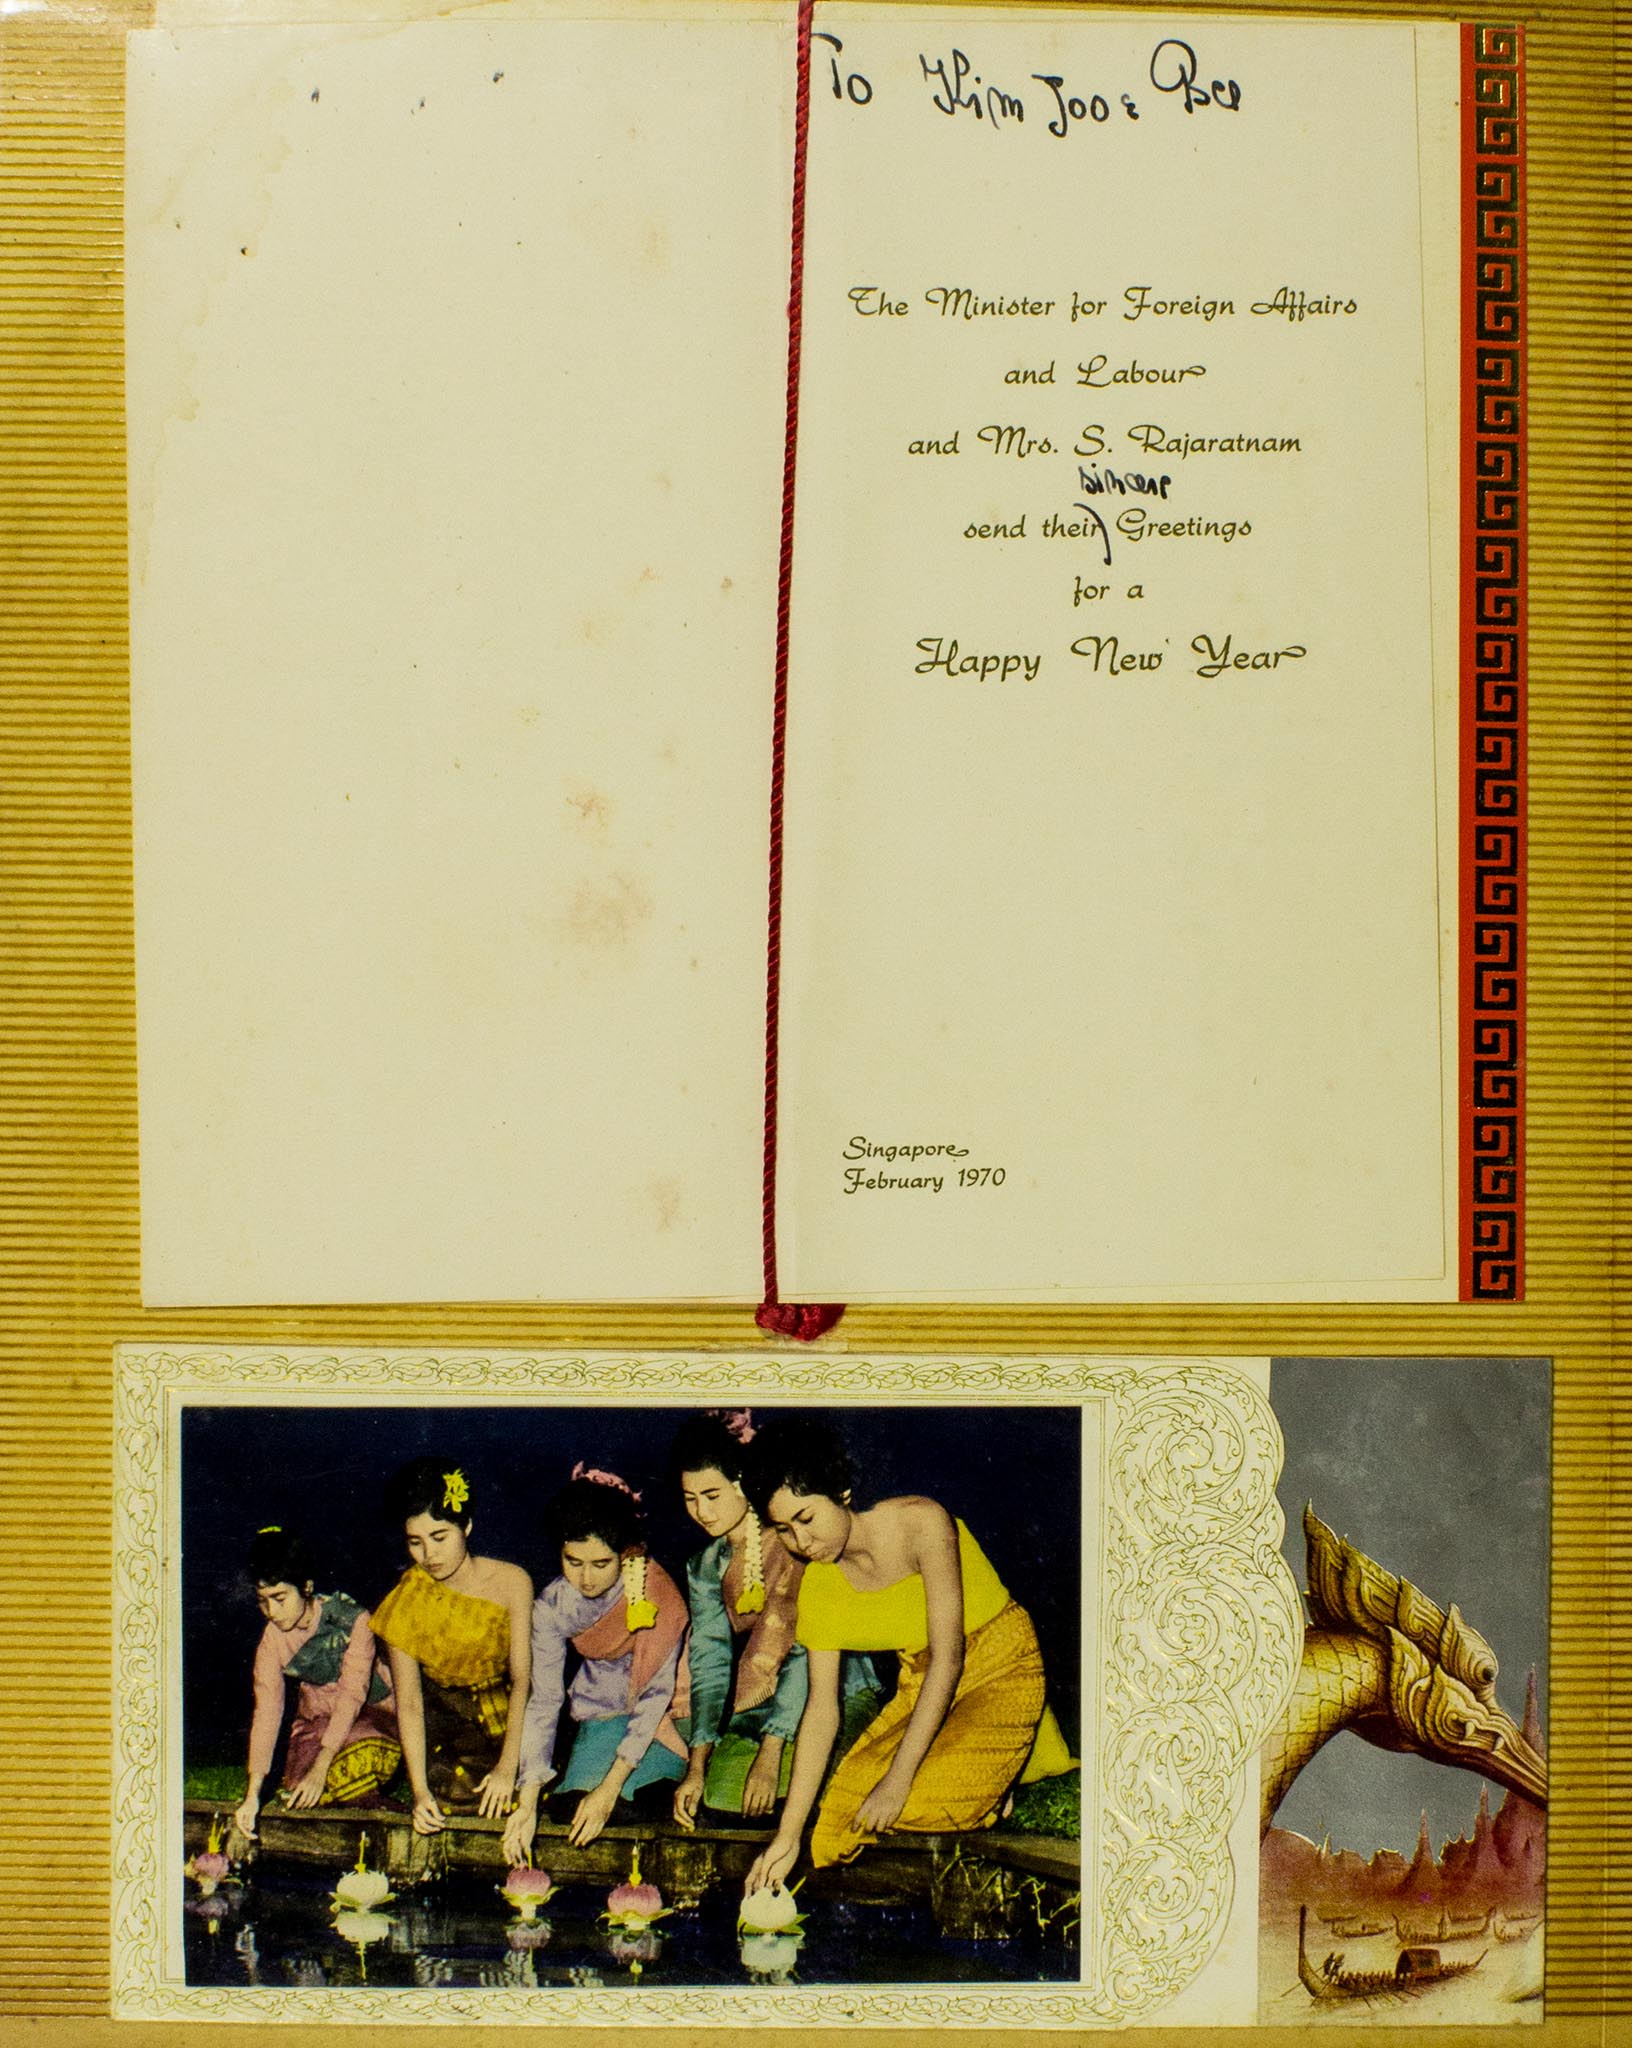 To Kim Joo & Bee
The Minister for Foreign Affairs
and Labour
and Mrs. S. Rajaratnam
sincere
send their Greetings
for a
Happy New Year
Singapore
February 1970